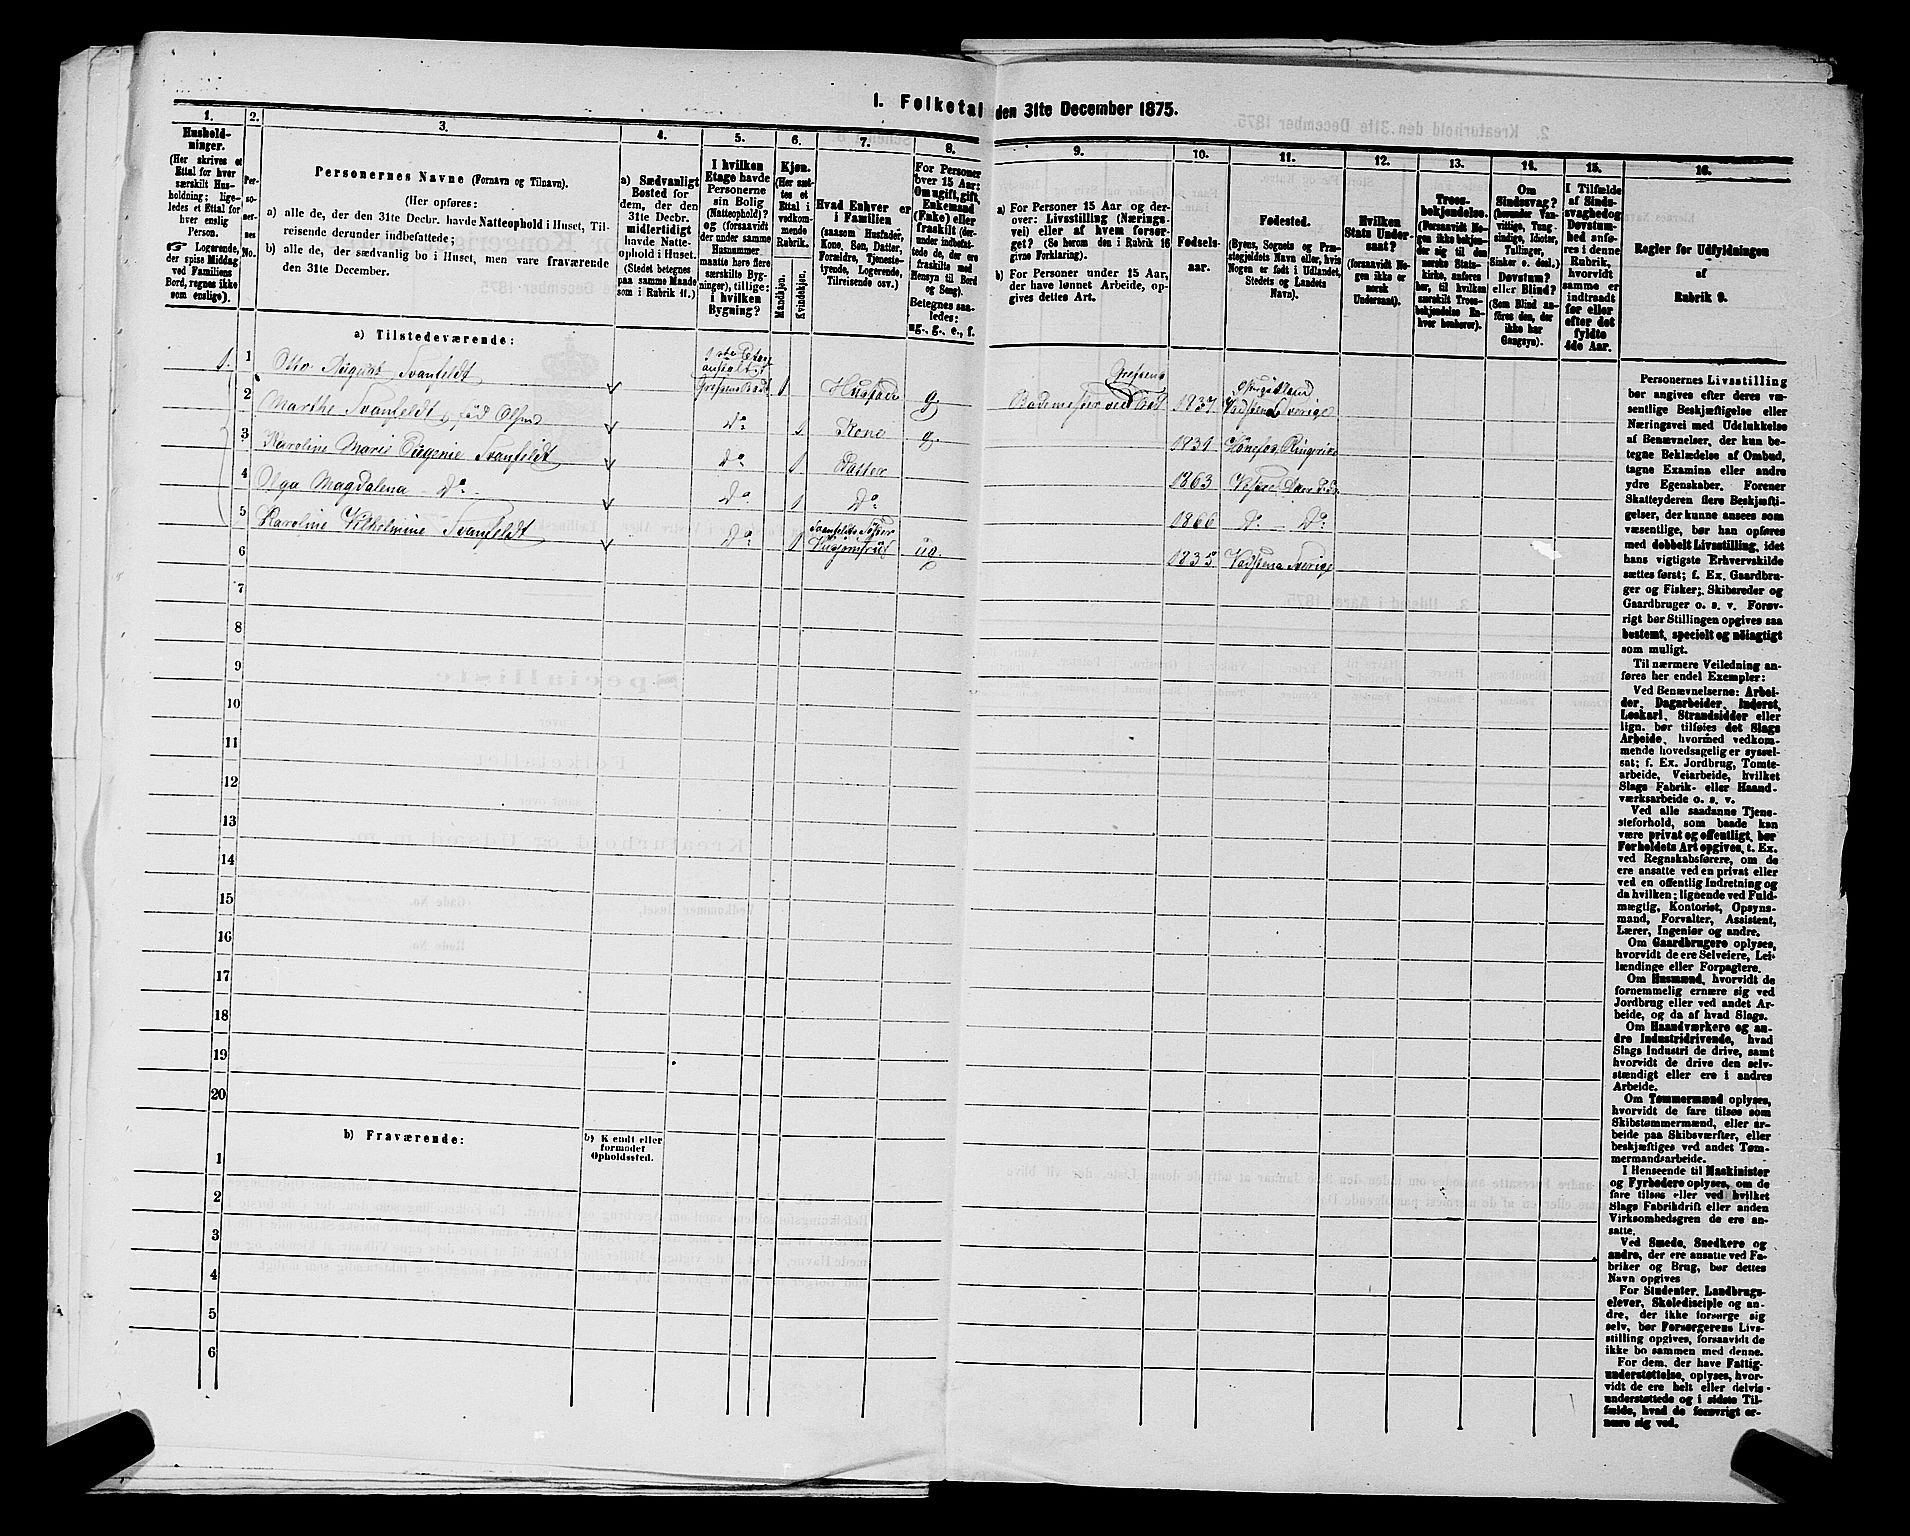 I. Folketal den 31te December 1875.
1.
Hushold-
ninger.
(Her skrives et
Ettal for hver
særskilt Hus-
holdning; lige-
ledes et Ettal for
hver enslig
Person.
☞ Logerende,
der spise Middag
ved Familiens
Bord, regnes ikke
som enslige).
2.
Per-
so-
ner-
nes
No.
3.
Personernes Navne (Fornavn og Tilnavn).
(Her opføres:
a) alle de, der den 31te Decbr. havde Natteophold i Huset, Til-
reisende derunder indbefattede;
b) alle de, der sædvanlig bo i Huset, men vare fraværende
den 31te December.
4.
a) Sædvanligt
Bosted for
dem, der den
31te Decbr.
midlertidigt
havde Natte-
ophold i Huset.
(Stedet betegnes
paa samme Maade
som i Rubrik 11.)
5.
I hvilken
Etage havde
Personerne
sin Bolig
(Natteophold)?
og (forsaavidt
der under samme
Husnummer
maatte høre flere
særskilte Byg-
ninger), tillige:
i hvilken
Bygning?
6.
Kjøn.
(Her sæt-
tes et
Ettal i
vedkom-
mende
Rubrik.
Mandkjøn.
Kvindekjøn.
7.
Hvad Enhver er
i Familien
(saasom Husfader,
Kone, Søn, Datter,
Forældre, Tjeneste-
tyende, Logerende,
Tilreisende osv.)
8.
For Personer
over 15 Aar:
Om ugift, gift,
Enkemand
(Enke) eller
fraskilt (der-
under indbefat-
tede de, der
ere fraskilte med
Hensyn til Bord
og Seng).
Betegnes saa-
ledes:
ug., g., e., f.
9.
a) For Personer 15 Aar og der-
over: Livsstilling (Nærings-
vei) eller af hvem forsør-
get? (Se herom den i Rubrik 16
givne Forklaring).
b) For Personer under 15 Aar,
der have lønnet Arbeide, op-
gives dettes Art.
10.
Fødsels-
aar.
11.
Fødested.
(Byens, Sognets og Præ-
stegjeldets Navn eller, hvis
Nogen er født i Udlandet,
Stedets og Landets
Navn).
12.
Hvilken
Stats Under-
saat?
(forsaavidt No-
gen ikke er
norsk
Undersaat).
13.
Troes-
bekjendelse.
(Forsaavidt No-
gen ikke bekjen-
der sig til den
norske Stats-
kirke, anføres
her, til hvilken
særskilt Troes-
bekjendelse En-
hver henhører).
14.
Om
Sindssvag?
(herunder Van-
vittige, Tung-
sindige, Idioter,
Tullinger,
Sinker o. desl.)
Døvstum?
eller Blind?
(Som Blind an-
føres den, der
ikke har
Gangsyn).
15.
I Tilfælde
af Sinds-
svaghed og
Døvstum-
hed anfø-
res i denne
Rubrik,
hvorvidt
samme er
indtraadt
før eller
efter det
fyldte
4de Aar.
16.
Regler for Udfyldningen
af
Rubrik 9.
a) Tilstedeværende:
1. 1 Otto August Svanfeldt 1ste Etage anstalt Grefsens Badt 1 Husfader g Bademester ved Grefsens Bad 1837 Østgötland Vadstena Sverige
2 Marthe Svanfeldt född Olsen Do 1 Kone g. 1831 Hönefos, Ringerike
3 Karoline Marie Eugenie Svanfeldt Do 1 Datter 1863 Vestre Aker
4 Olga Magdalena - Do - Do 1 Do 1866 Do - Do
5 Karoline Vilhelmine Svanfeldt Do 1 Svanfeldts Söster ug. 1835 Vadstena Sverige
6
7
8
9
10
11
12
13
14
15
16
17
18
19
20
b) Fraværende:
b) Kjendt eller
formodet
Opholdssted.
1
2
3
4
5
6
Personernes Livsstilling
bør angives efter deres væ-
sentlige Beskjæftigelse eller
Næringsvei med Udelukkelse
af Benævnelser, der kun be-
tegne Beklædelse af Ombud,
tagne Examina eller andre
ydre Egenskaber. Forener
Skatteyderen flere Beskjæfti-
gelser, der kunne ansees som
væsentlige, bør han opføres
med dobbelt Livsstilling, idet
hans vigtigste Erhvervskilde
sættes først; f. Ex. Gaardbru-
ger og Fisker; Skibsreder og
Gaardbruger o. s. v. Forøv-
rigt bør Stillingen opgives saa
bestemt, specielt og nøiagtigt
som muligt.
Til nærmere Veiledning an-
føres her endel Exempler:
Ved Benævnelserne: Arbei-
der, Dagarbeider, Inderst,
Løskarl, Strandsidder eller
lign. bør tilføies det Slags
Arbeide, hvormed vedkom-
mende hovedsagelig er syssel-
sat; f. Ex. Jordbrug, Tomte-
arbeide, Veiarbeide, hvilket
Slags Fabrik- eller Haand-
værksarbeide o. s. v.
Ved alle saadanne Tjene-
steforhold, som baade kan
være privat og offentligt, bør
Forholdets Art opgives, t. Ex.
ved Regnskabsførere, om de
ere ansatte ved en privat eller
ved en offentlig Indretning og
da hvilken; lignende ved Fuld-
mægtig, Kontorist, Opsyns-
mand, Forvalter, Assistent,
Lærer, Ingeniør og andre.
Om Gaardbrugere oplyses,
hvorvidt de ere Selveiere, Lei-
lændinge eller Forpagtere.
Om Husmænd, hvorvidt de
fornemmelig ernære sig ved
Jordbrug eller ved andet Ar-
beide, og da af hvad Slags.
Om Haandværkere og an-
dre Industridrivende, hvad
Slags Industri de drive, samt
hvorvidt de drive den selv-
stændigt eller ere i andres
Arbeide.
Om Tømmermænd oplyses,
hvorvidt de fare tilsøs som
Skibstømmermænd, eller ar-
beide paa Skibsværfter, eller
beskjæftiges ved andet Tøm-
mermandsarbeide.
I Henseende til Maskinister
og Fyrbødere oplyses, om de
fare tilsøs eller ved hvilket
Slags Fabrikdrift eller anden
Virksomhedsgren de ere an-
satte.
Ved Smede, Snedkere og
andre, der ere ansatte ved Fa-
briker og Brug, bør dettes
Navn opgives
For Studenter, Landbrugs-
elever, Skoledisciple og an-
dre, der ikke forsørge sig
selv, bør Forsørgerens Livs-
stilling opgives, forsaavidt de
ikke bo sammen med denne.
For dem, der have Fattig-
understøttelse, oplyses, hvor-
vidt de ere helt eller delvis
understøttede og i sidste Til-
fælde, hvad de forøvrigt er-
nære sig ved.